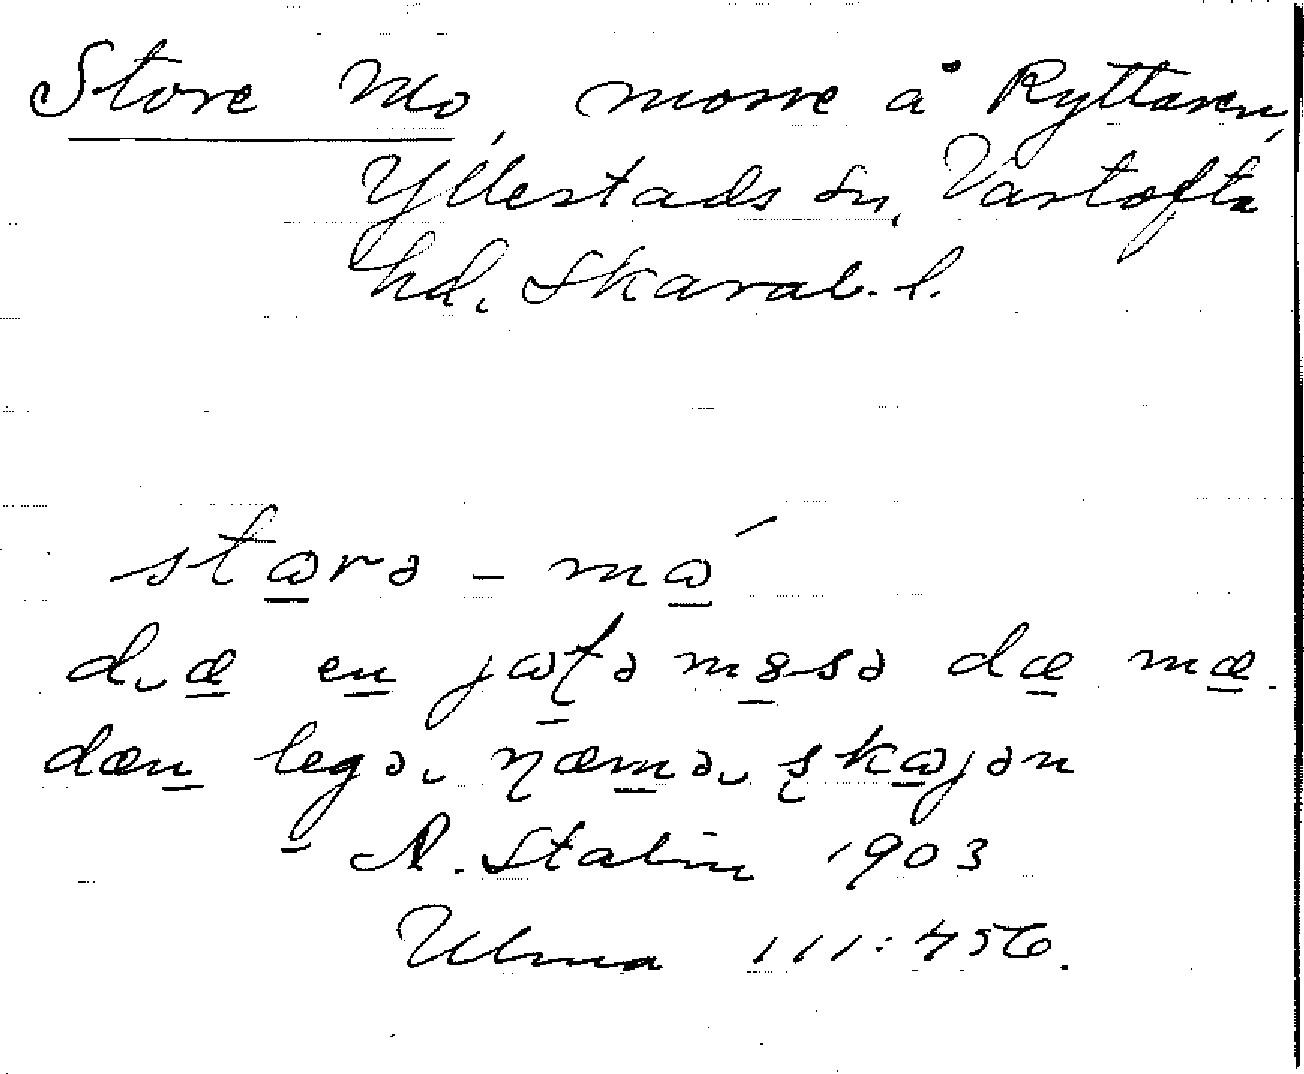 Store Mo, mosse å Ryttaren,
Yllestads sn, Vartofta
hd, Skarab. l.
stɷrə - mɷ́
dæ en jɷtə məsə dæ mæ
dæn legə, næmə, skɷjən
A. Stalin 1903
Ulma 111:456.